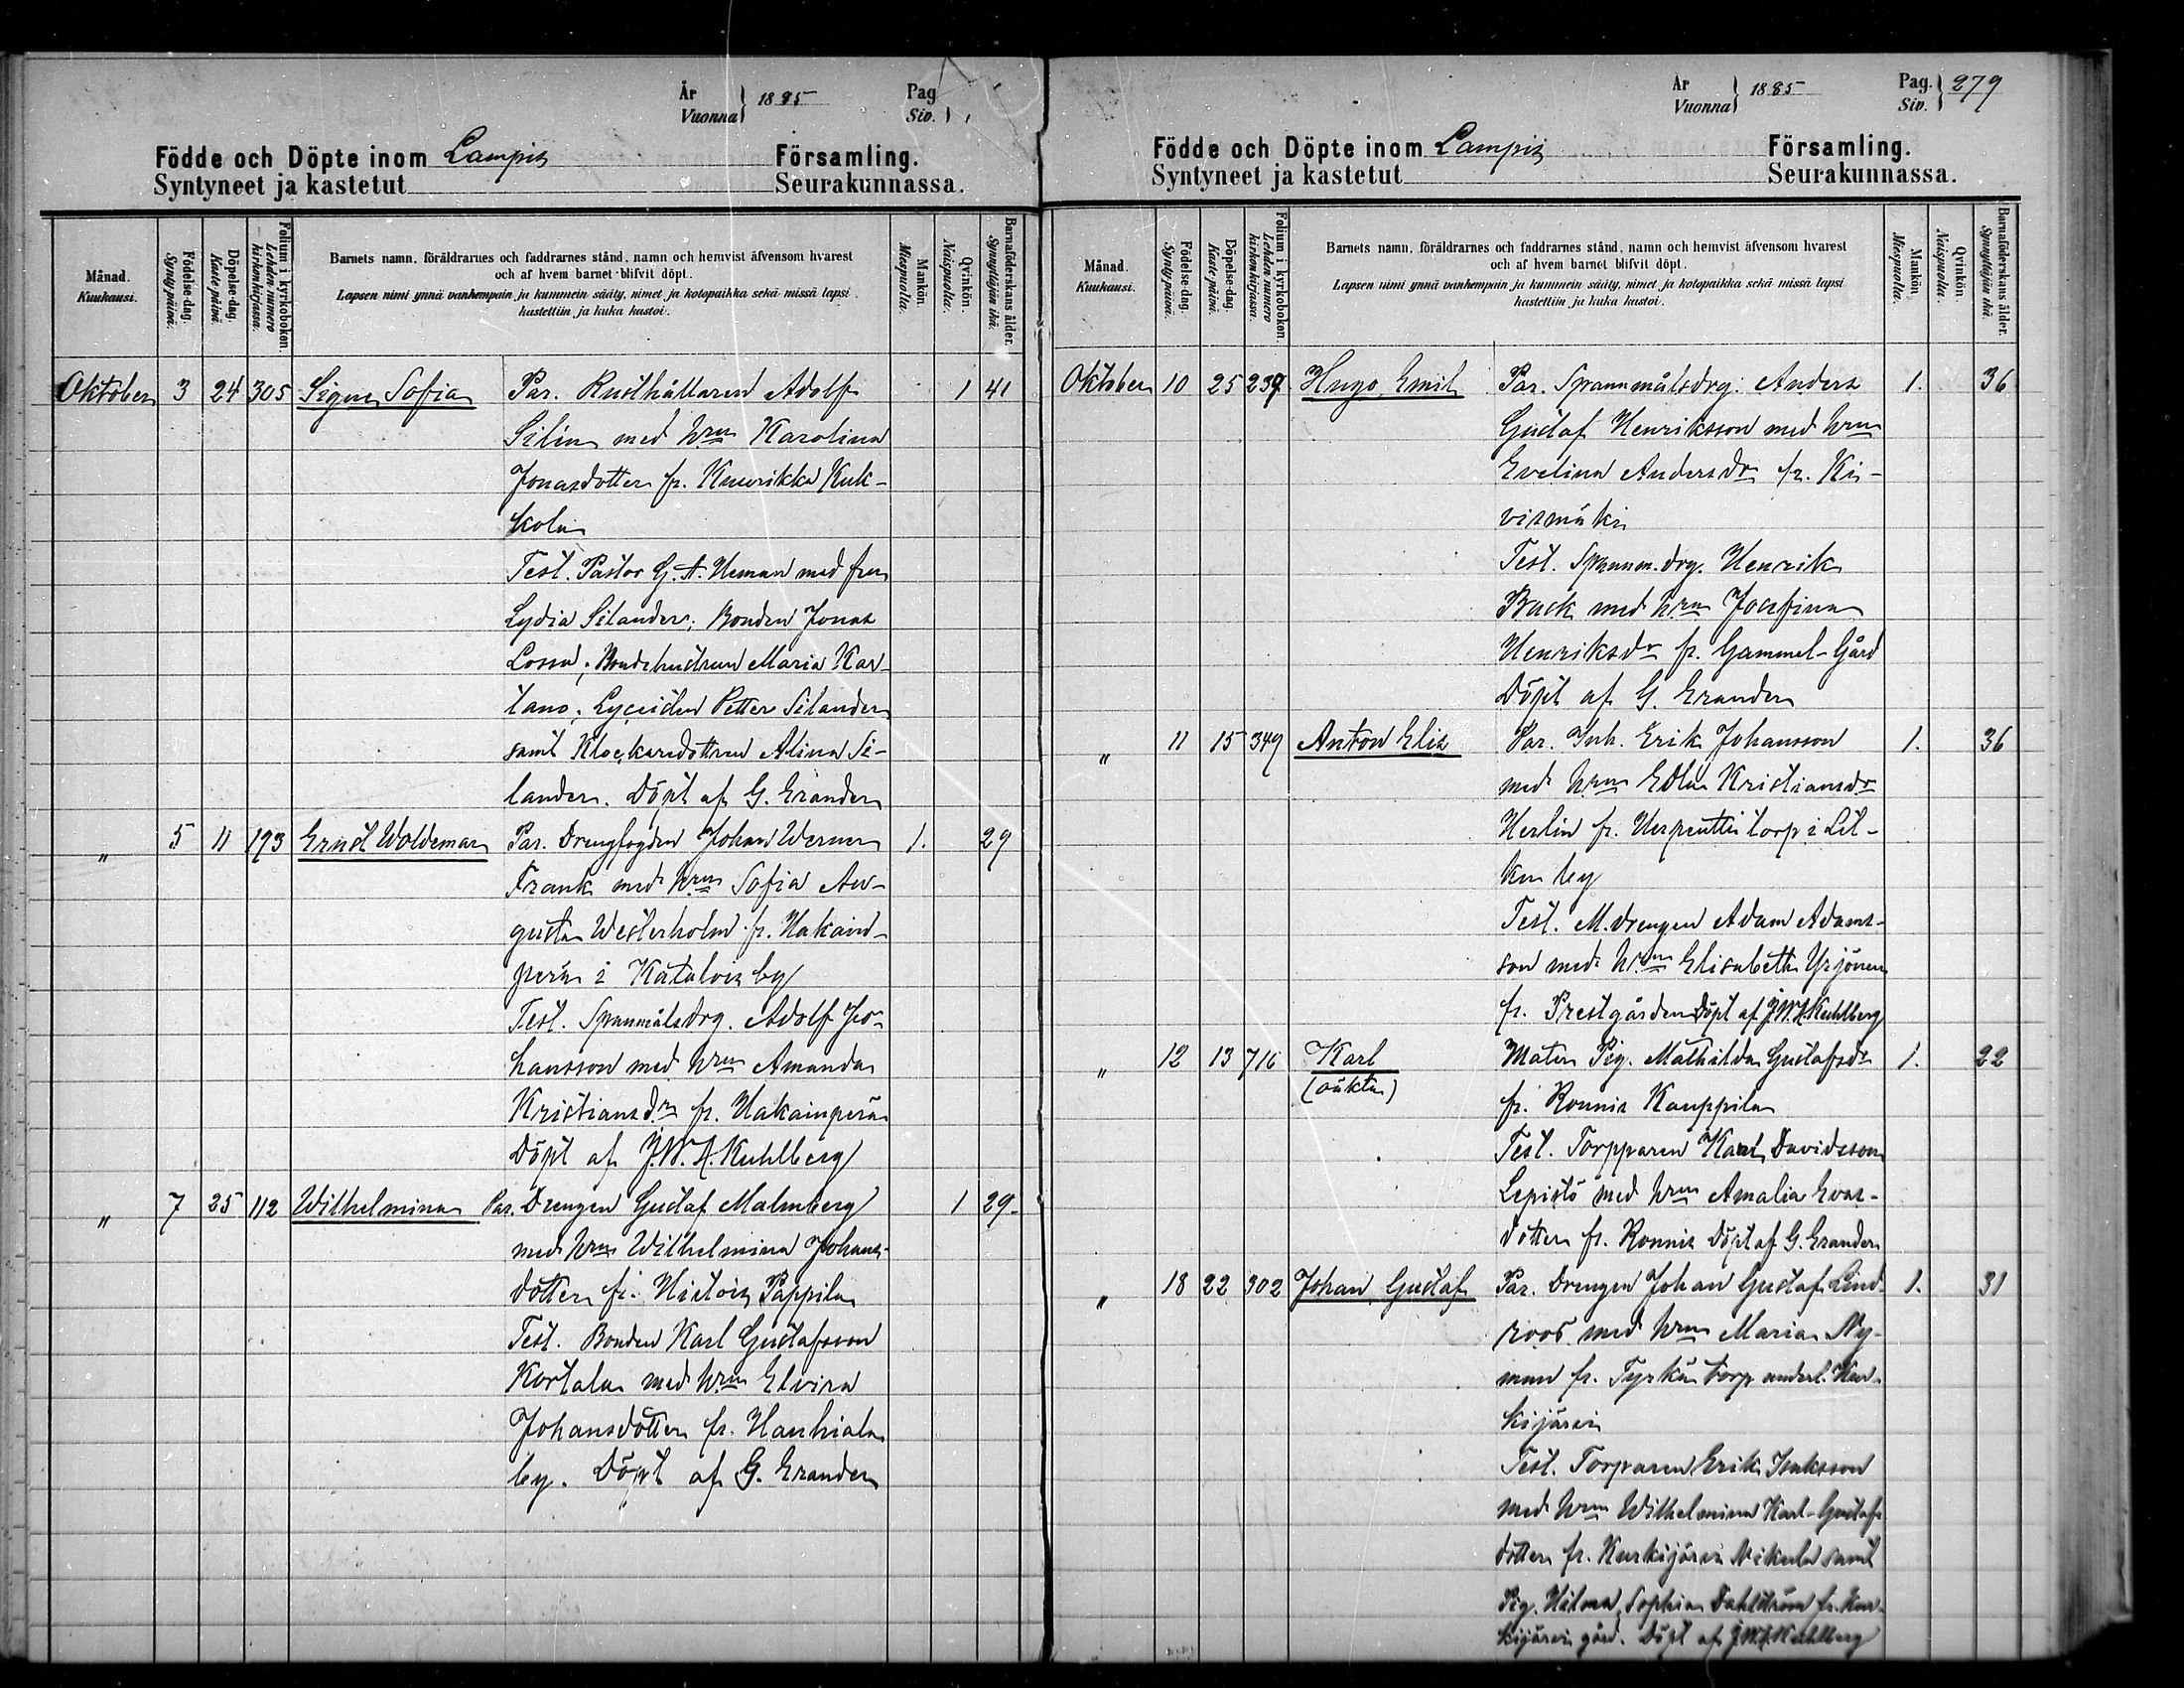 År
Vuonna } 1885 Pag.
Siv. }
Födde och Döpte inom Lampis Församling.
Syntyneet ja kastetut Seurakunnassa.
Månad.
Kuukausi.
Födelse-dag.
Synty päivä.
Döpelse-dag.
Kaste päivä.
Folium i kyrkoboken.
Lehden numero
kirkonkirjassa.
Barnets namn, föräldrarnes och faddrarnes stånd, namn och hemvist äfvensom hvarest
och af hvem barnet blifvit döpt.
Lapsen nimi ynnä vanhempain ja kummein sääty, nimet ja kotopaikka sekä missä lapsi
kastettiin ja kuka kastoi.
Mankön.
Miespuolta.
Qvinkön.
Naispuolta.
Barnaföderskans ålder.
Synnyttäjän ikä.
Oktober 3 24 305 Signe Sofia Par. Rusthållaren Adolf 1 41
Silén med hrun Karolina
Jonasdotter fr. Kuurikka Kuk-
kola
Test. Pastor G. A. Heman med fru
Lydia Silander; Bonden Jonas
Lossa; Bondehustrun Maria Kar-
tano; Lyceisten Petter Silander
samt Klockaredottren Alina Si-
lander. Döpt af G. Erander
" 5 11 193 Ernst Woldemar Par. Drengfogden Johan Werner 1. 29
Frank med hrun Sofia Au-
gusta Westerholm fr. Hakain-
perä i Katalois by
Test. Spanmålsdrg. Adolf Jo-
hansson med hrun Amanda
Kristiansdr fr. Hakainperä
Döpt af J. W. A. Kuhlberg
" 7 25 112 Wilhelmina Par. Drengen Gustaf Malmberg 1 29
med hrun Wilhelmina Johans-
dotter fr. Hietois Pappila
Test. Bonden Karl Gustafsson
Kortala med hrun Elvira
Johansdotter fr. Hauhiala
by. Döpt af G. Erander
År
Vuonna } 1885 Pag.
Siv. } 279
Födde och Döpte inom Lampis Församling.
Syntyneet ja kastetut Seurakunnassa.
Månad.
Kuukausi.
Födelse-dag.
Synty päivä.
Döpelse-dag.
Kaste päivä.
Folium i kyrkoboken.
Lehden numero
kirkonkirjassa.
Barnets namn, föräldrarnes och faddrarnes stånd, namn och hemvist äfvensom hvarest
och af hvem barnet blifvit döpt.
Lapsen nimi ynnä vanhempain ja kummein sääty, nimet ja kotopaikka sekä missä lapsi
kastettiin ja kuka kastoi.
Mankön
Miespuolta.
Qvinkön.
Naispuolta.
Barnaföderskans ålder.
Synnyttäjän ikä.
Oktober 10 25 239 Hugo Emil Par. Spannmålsdrg. Anders 1. 36
Gustaf Henriksson med hrun
Evelina Andersdr fr. Ki-
vismäki
Test. Spannm.drg. Henrik
Back med hrun Josefina
Henriksdr fr. Gammel-Gård
Döpt af G. Erander
" 11 15 349 Anton Elis Par. Inh. Erik Johansson 1. 36
med hrun Edla Kristiansdr
Herlin fr. Herpentti torp i Lil-
ku by
Test. M.drengen Adam Adams-
son med hrun Elisabeth Yrjönen
fr. Prestgården Döpt af J. W. A. Kuhlberg
" 12 13 716 Karl Mater Pig. Mathilda Gustafsdr 1. 22
(oäkta) fr. Ronnis Kauppila
Test. Torpparen Karl Davidsson
Lepistö med hrun Amalia Evas-
dotter fr. Ronnis Döpt af G. Erander
" 18 22 302 Johan Gustaf Par. Drengen Johan Gustaf Lind- 1. 31
roos med hrun Maria Ny-
man fr. Tyrkä torp underl. Kur-
kijärvi
Test. Torparen Erik Isaksson
med hrun Wilhelmina Karl-Gustafs
dotter fr. Kurkijärvi Nikula samt
Pig. Hilma Sophia Dahlström fr. Kur-
kijärvi gård. Döpt af J. W. A. Kuhlberg